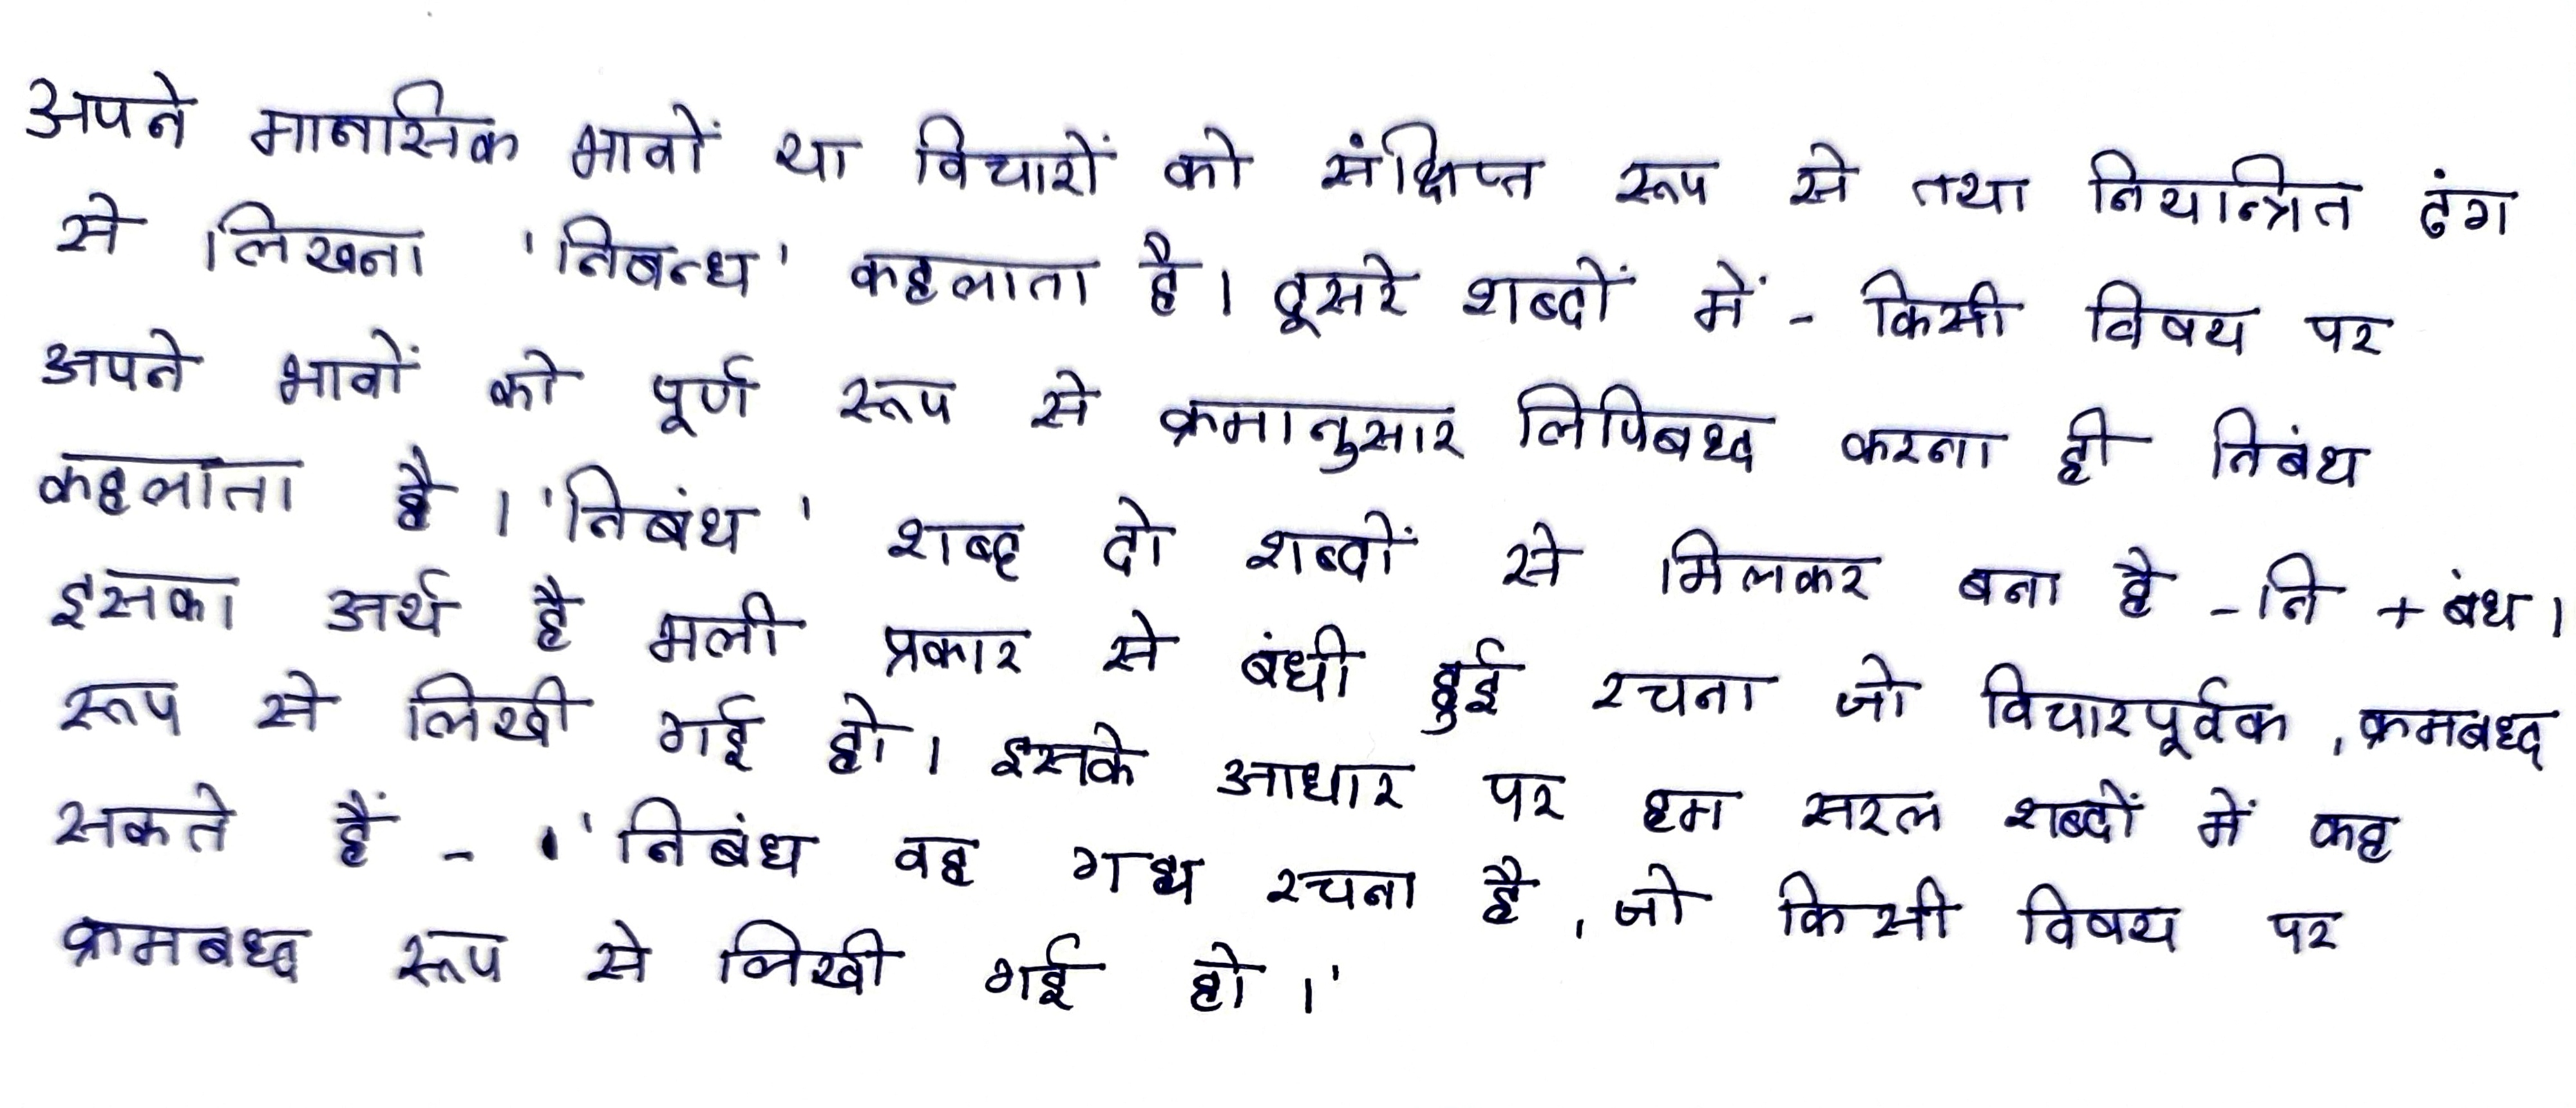 अपने मानसिक भावों या विचारों को संक्षिप्त रूप से तथा नियन्त्रित ढंग
से लिखना 'निबन्ध' कहलाता है। दूसरे शब्दों में - किसी विषय पर
अपने भावों को पूर्ण रूप से क्रमानुसार लिपिबध्द करना ही निबंध
कहलाता है। 'निबंध' शब्द दो शब्दों से मिलकर बना है - नि + बंध।
इसका अर्थ है भली प्रकार से बंधी हुई रचना जो विचारपूर्वक, क्रमबध्द
रूप से लिखी गई हो। इसके आधार पर हम सरल शब्दों में कह
सकते हैं - 'निबंध वह गद्य रचना है, जो किसी विषय पर
क्रमबध्द रूप से लिखी गई हो।'